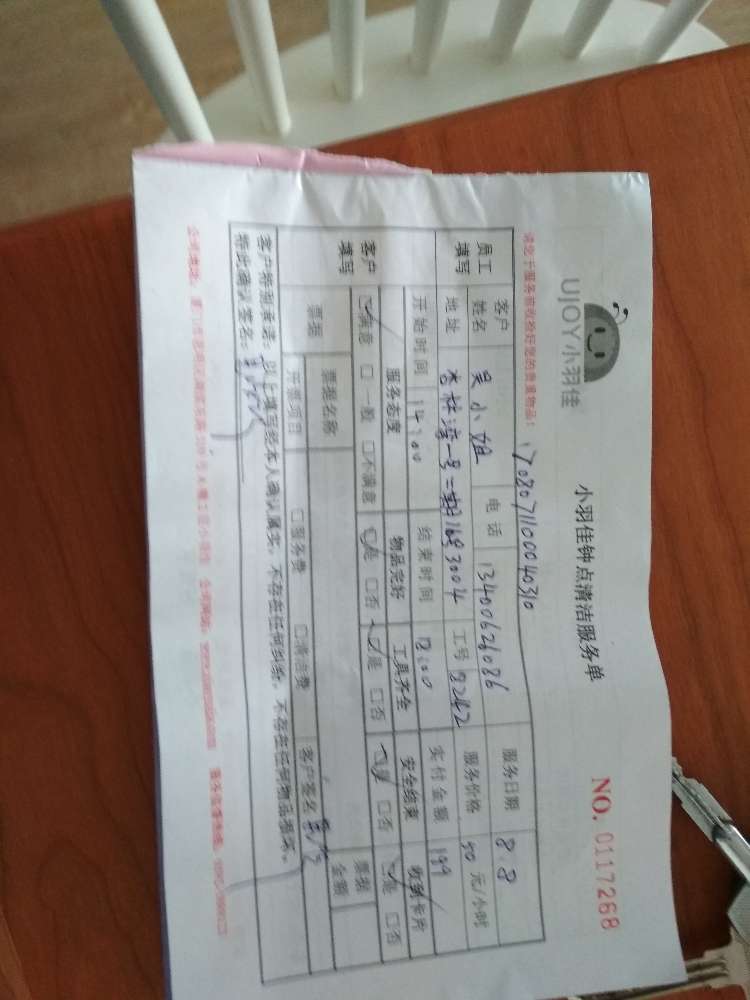 UJOY小羽佳
小羽佳钟点清洁服务单
NO. 0117268
请您于服务前收拾好您的贵重物品!
1708071100040310
员工填写
客户姓名 吴小姐 电话 13400626086 服务日期 8.8
地址 杏林湾一号二期 3004 工号 8242 服务价格 50 元/小时
开始时间 14:00 结束时间 18:00 实付金额 199
客户填写
服务态度 物品完好 工具齐全 安全结束 收到卡片
☑满意 □一般 □不满意 ☑是 □否 ☑是 □否 ☑是 □否 ☑是 □否
票据 票据名称 票据金额
开票项目 □服务费 □清洁费 客户签名
客户特别承诺:以上填写经本人确认属实,不存在任何纠纷,不存在任何物品损坏,
特此确认签名: